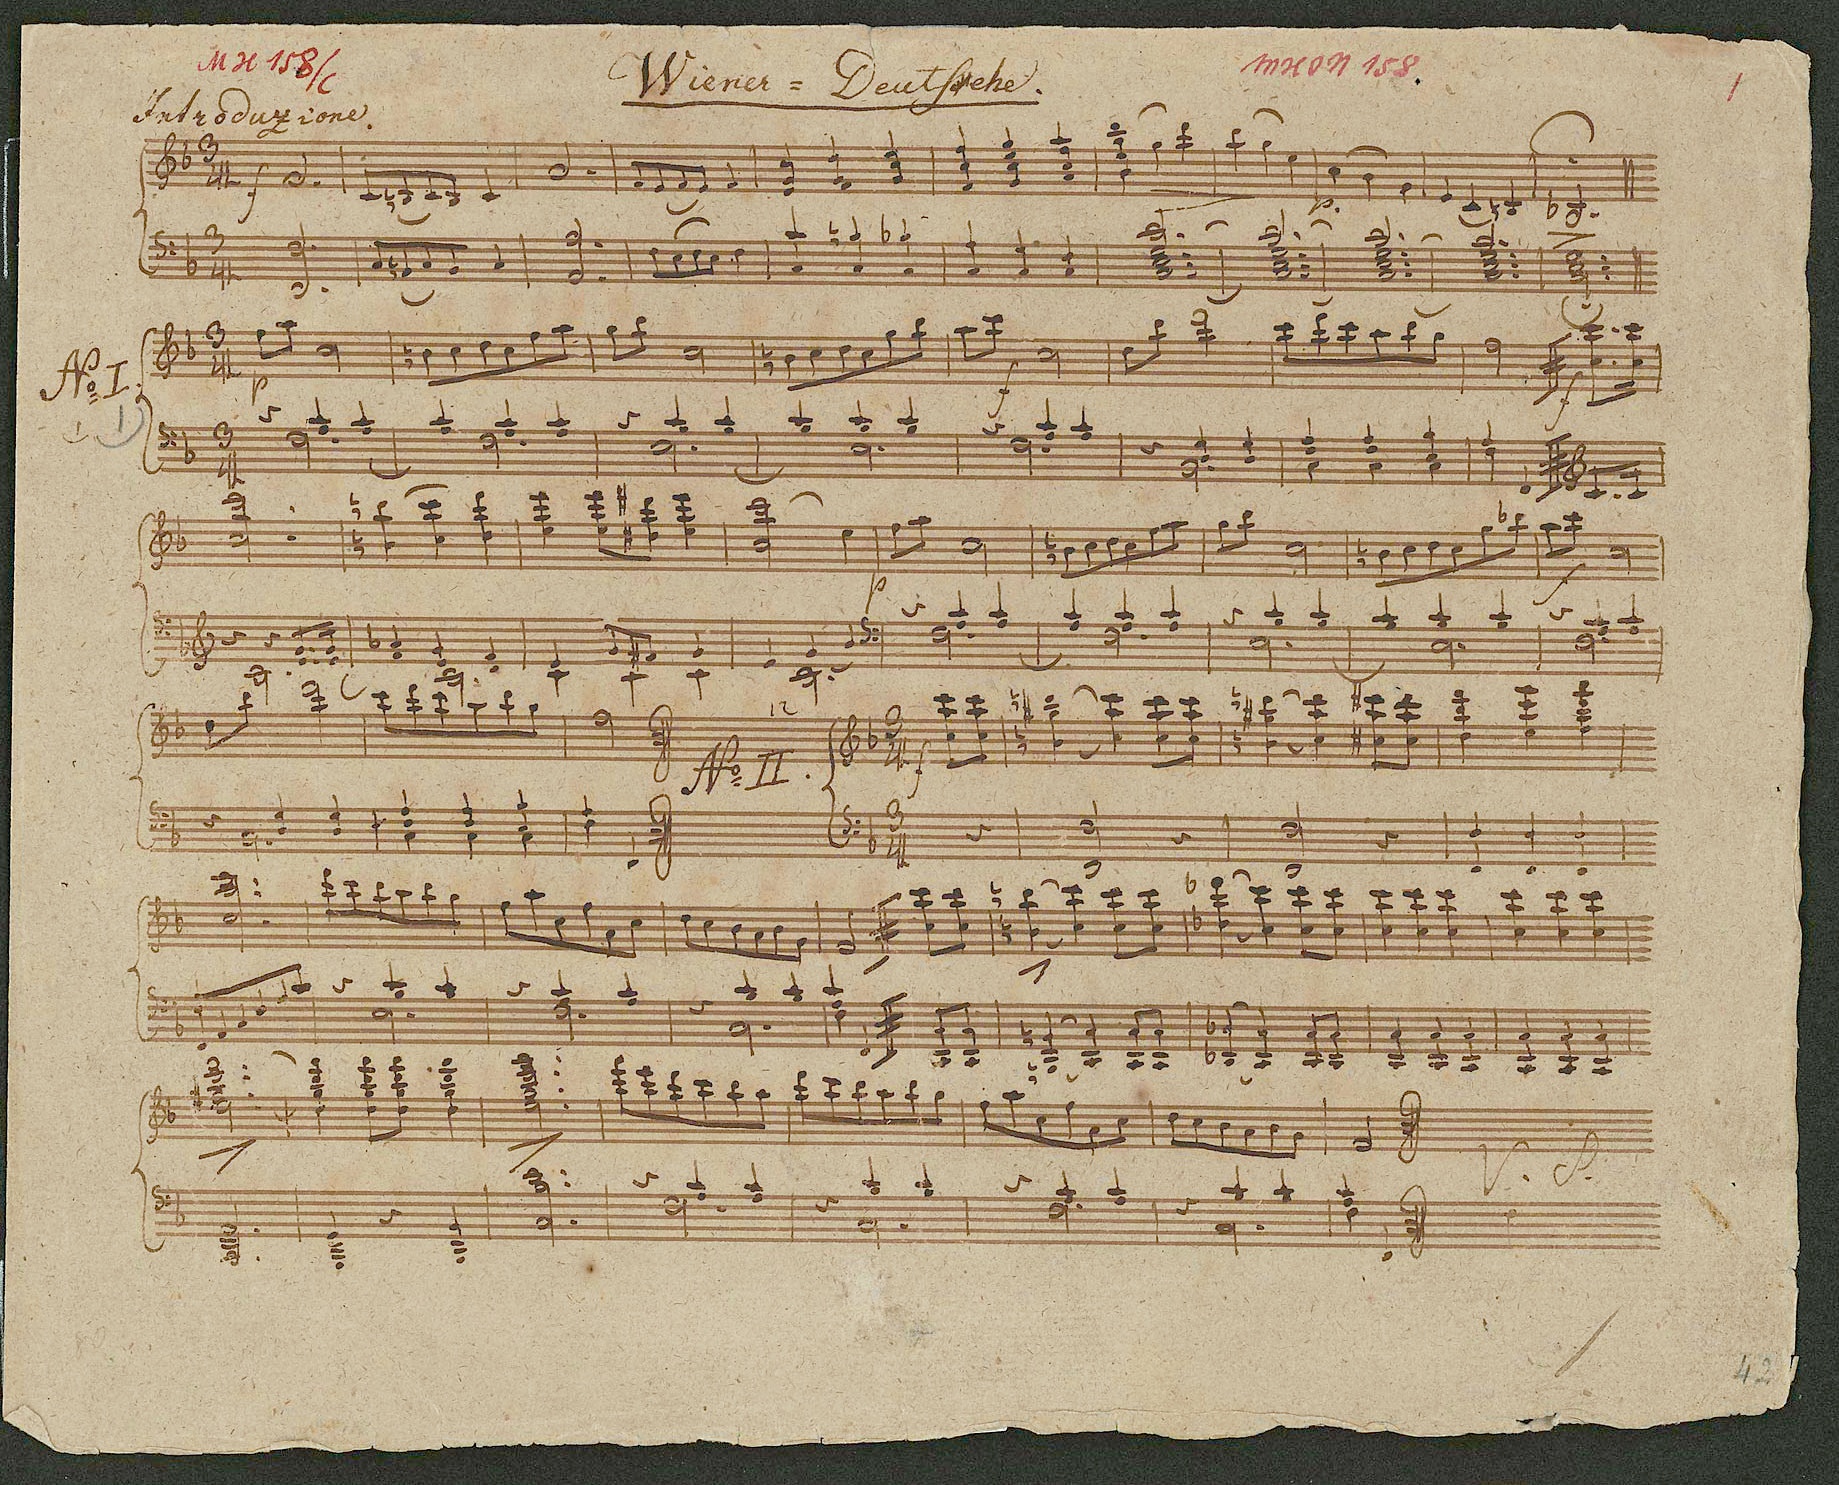 MH 158/c
Wiener = Deutsche.
MHON 158.
1
Introduzione.
3/4
f
p.
3/4
No I.
1
3/4
p
f
f
3/4
p
f
12
No II.
3/4
f
3/4
V. S.
42